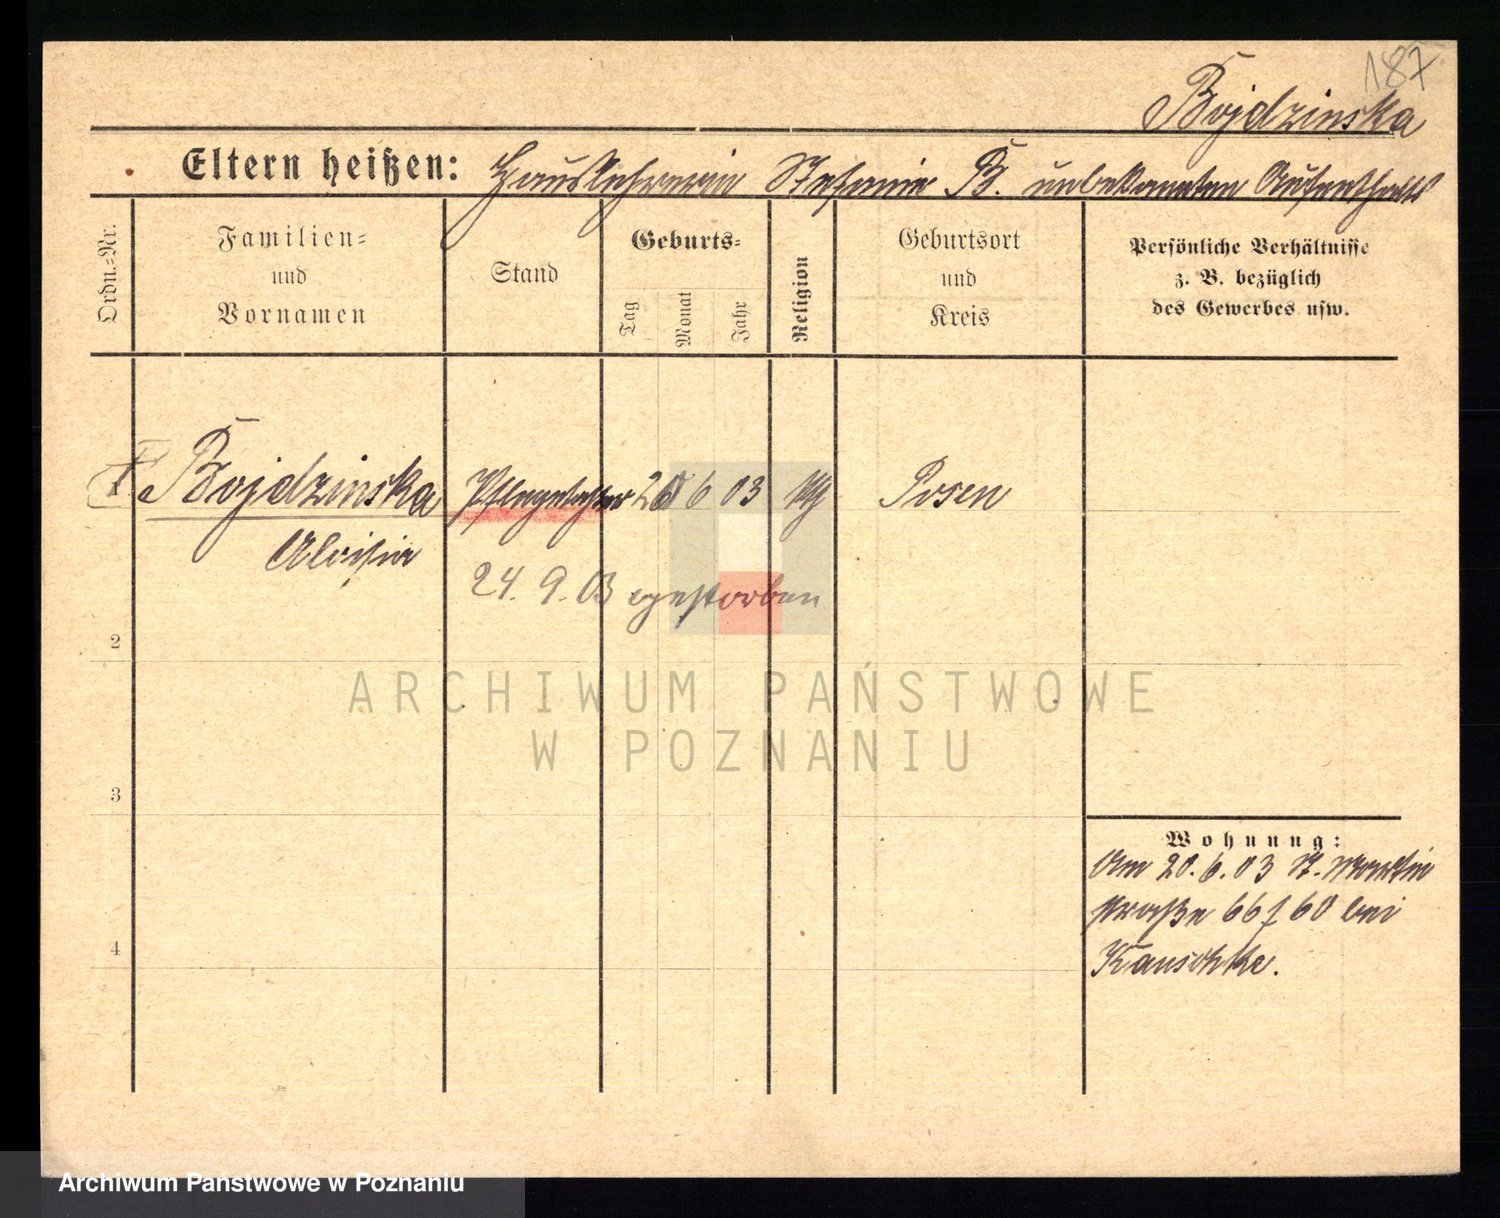 187
Bojdzinska
Eltern heißen: Hauslehrerin Stefanie B. unbekannten Aufenthalts
Ordn.-Nr.
Familien-
und
Vornamen
Stand
Geburts-
Tag
Monat
Jahr
Religion
Geburtsort
und
Kreis
Persönliche Verhältnisse
z. B. bezüglich
des Gewerbes usw.
1 Bojdzinska Pflegetochter 20 6 03 Posen
Aloisia
24. 9. 03 gestorben
2
ARCHIWUM PAŃSTWOWE
W POZNANIU
3
Wohnung:
Am 20. 6. 03 St. Martin
straße 66/60 bei
4
Archiwum Państwowe w Poznaniu